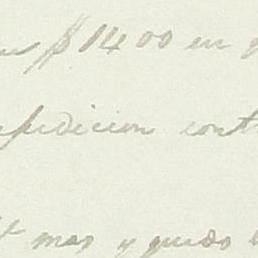 $1400 en
pedicion cont
mas y quedo